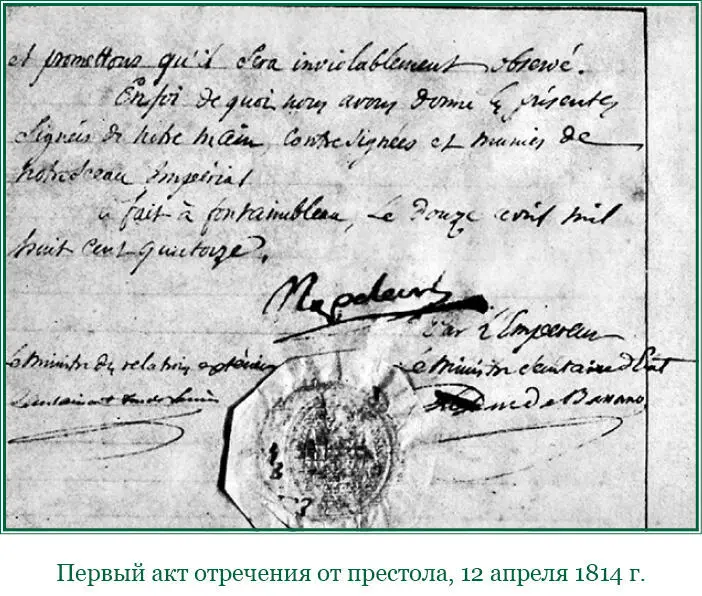 et promettons qu'il sera inviolablement observé.
En foi de quoi nous avons donné les présentes
signées de notre main, contresignées et munies de
notre sceau Impérial
fait à fontainebleau, le douze avril mil
huit cent quatorze.
Napoleon
Par l'Empereur
le Ministre des relations extérieures
le Ministre Secretaire d'Etat
Duc de Bassano
Первый акт отречения от престола, 12 апреля 1814 г.